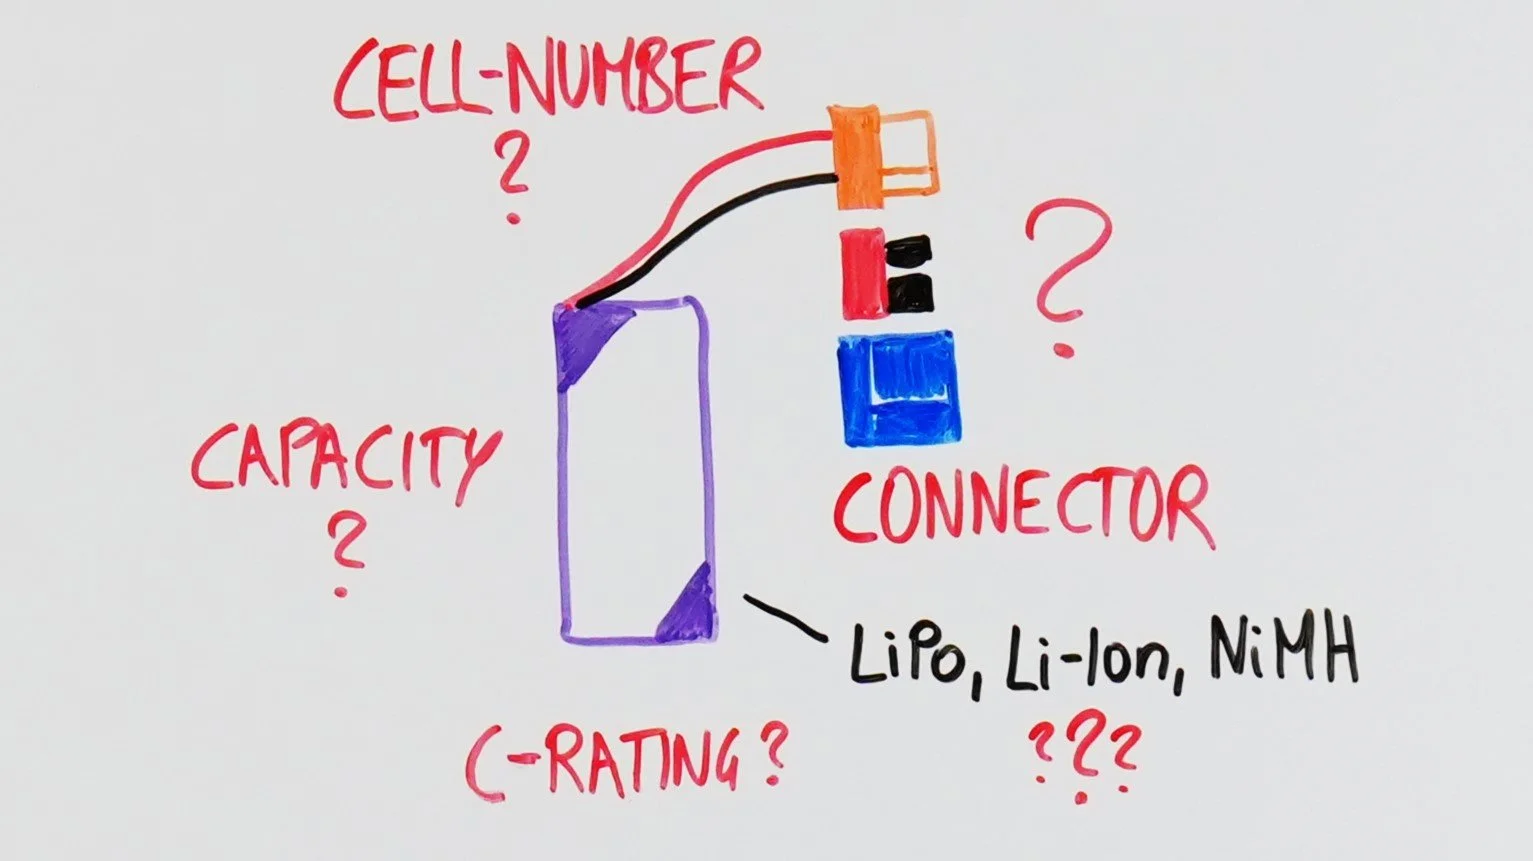 CELL-NUMBER
?
?
CAPACITY
?
CONNECTOR
LiPo, Li-Ion, NiMH
???
C-RATING?